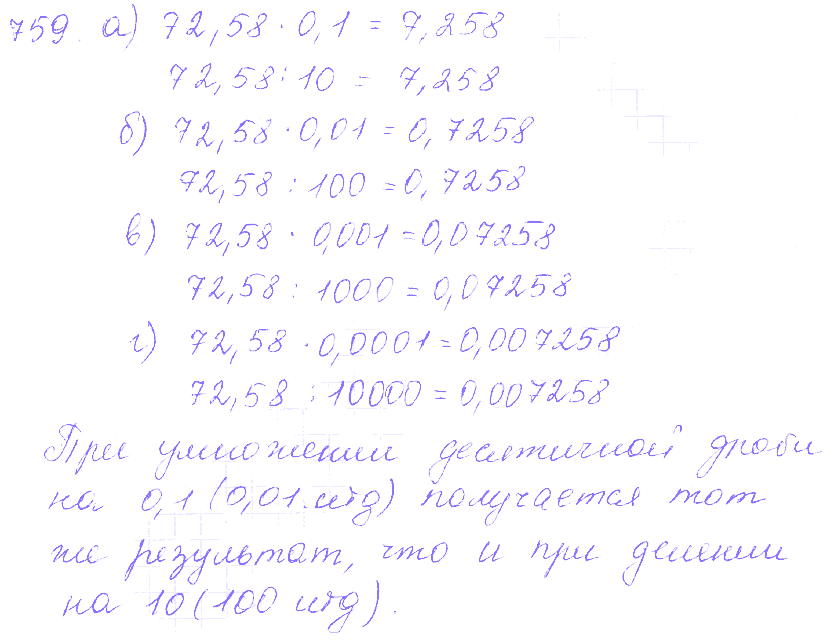 759. а) 72,58 · 0,1 = 7,258
72,58 : 10 = 7,258
б) 72,58 · 0,01 = 0,7258
72,58 : 100 = 0,7258
в) 72,58 · 0,001 = 0,07258
72,58 : 1000 = 0,07258
г) 72,58 · 0,0001 = 0,007258
72,58 : 10000 = 0,007258
При умножении десятичной дроби
на 0,1 (0,01 итд) получается тот
же результат, что и при делении
на 10 (100 итд).